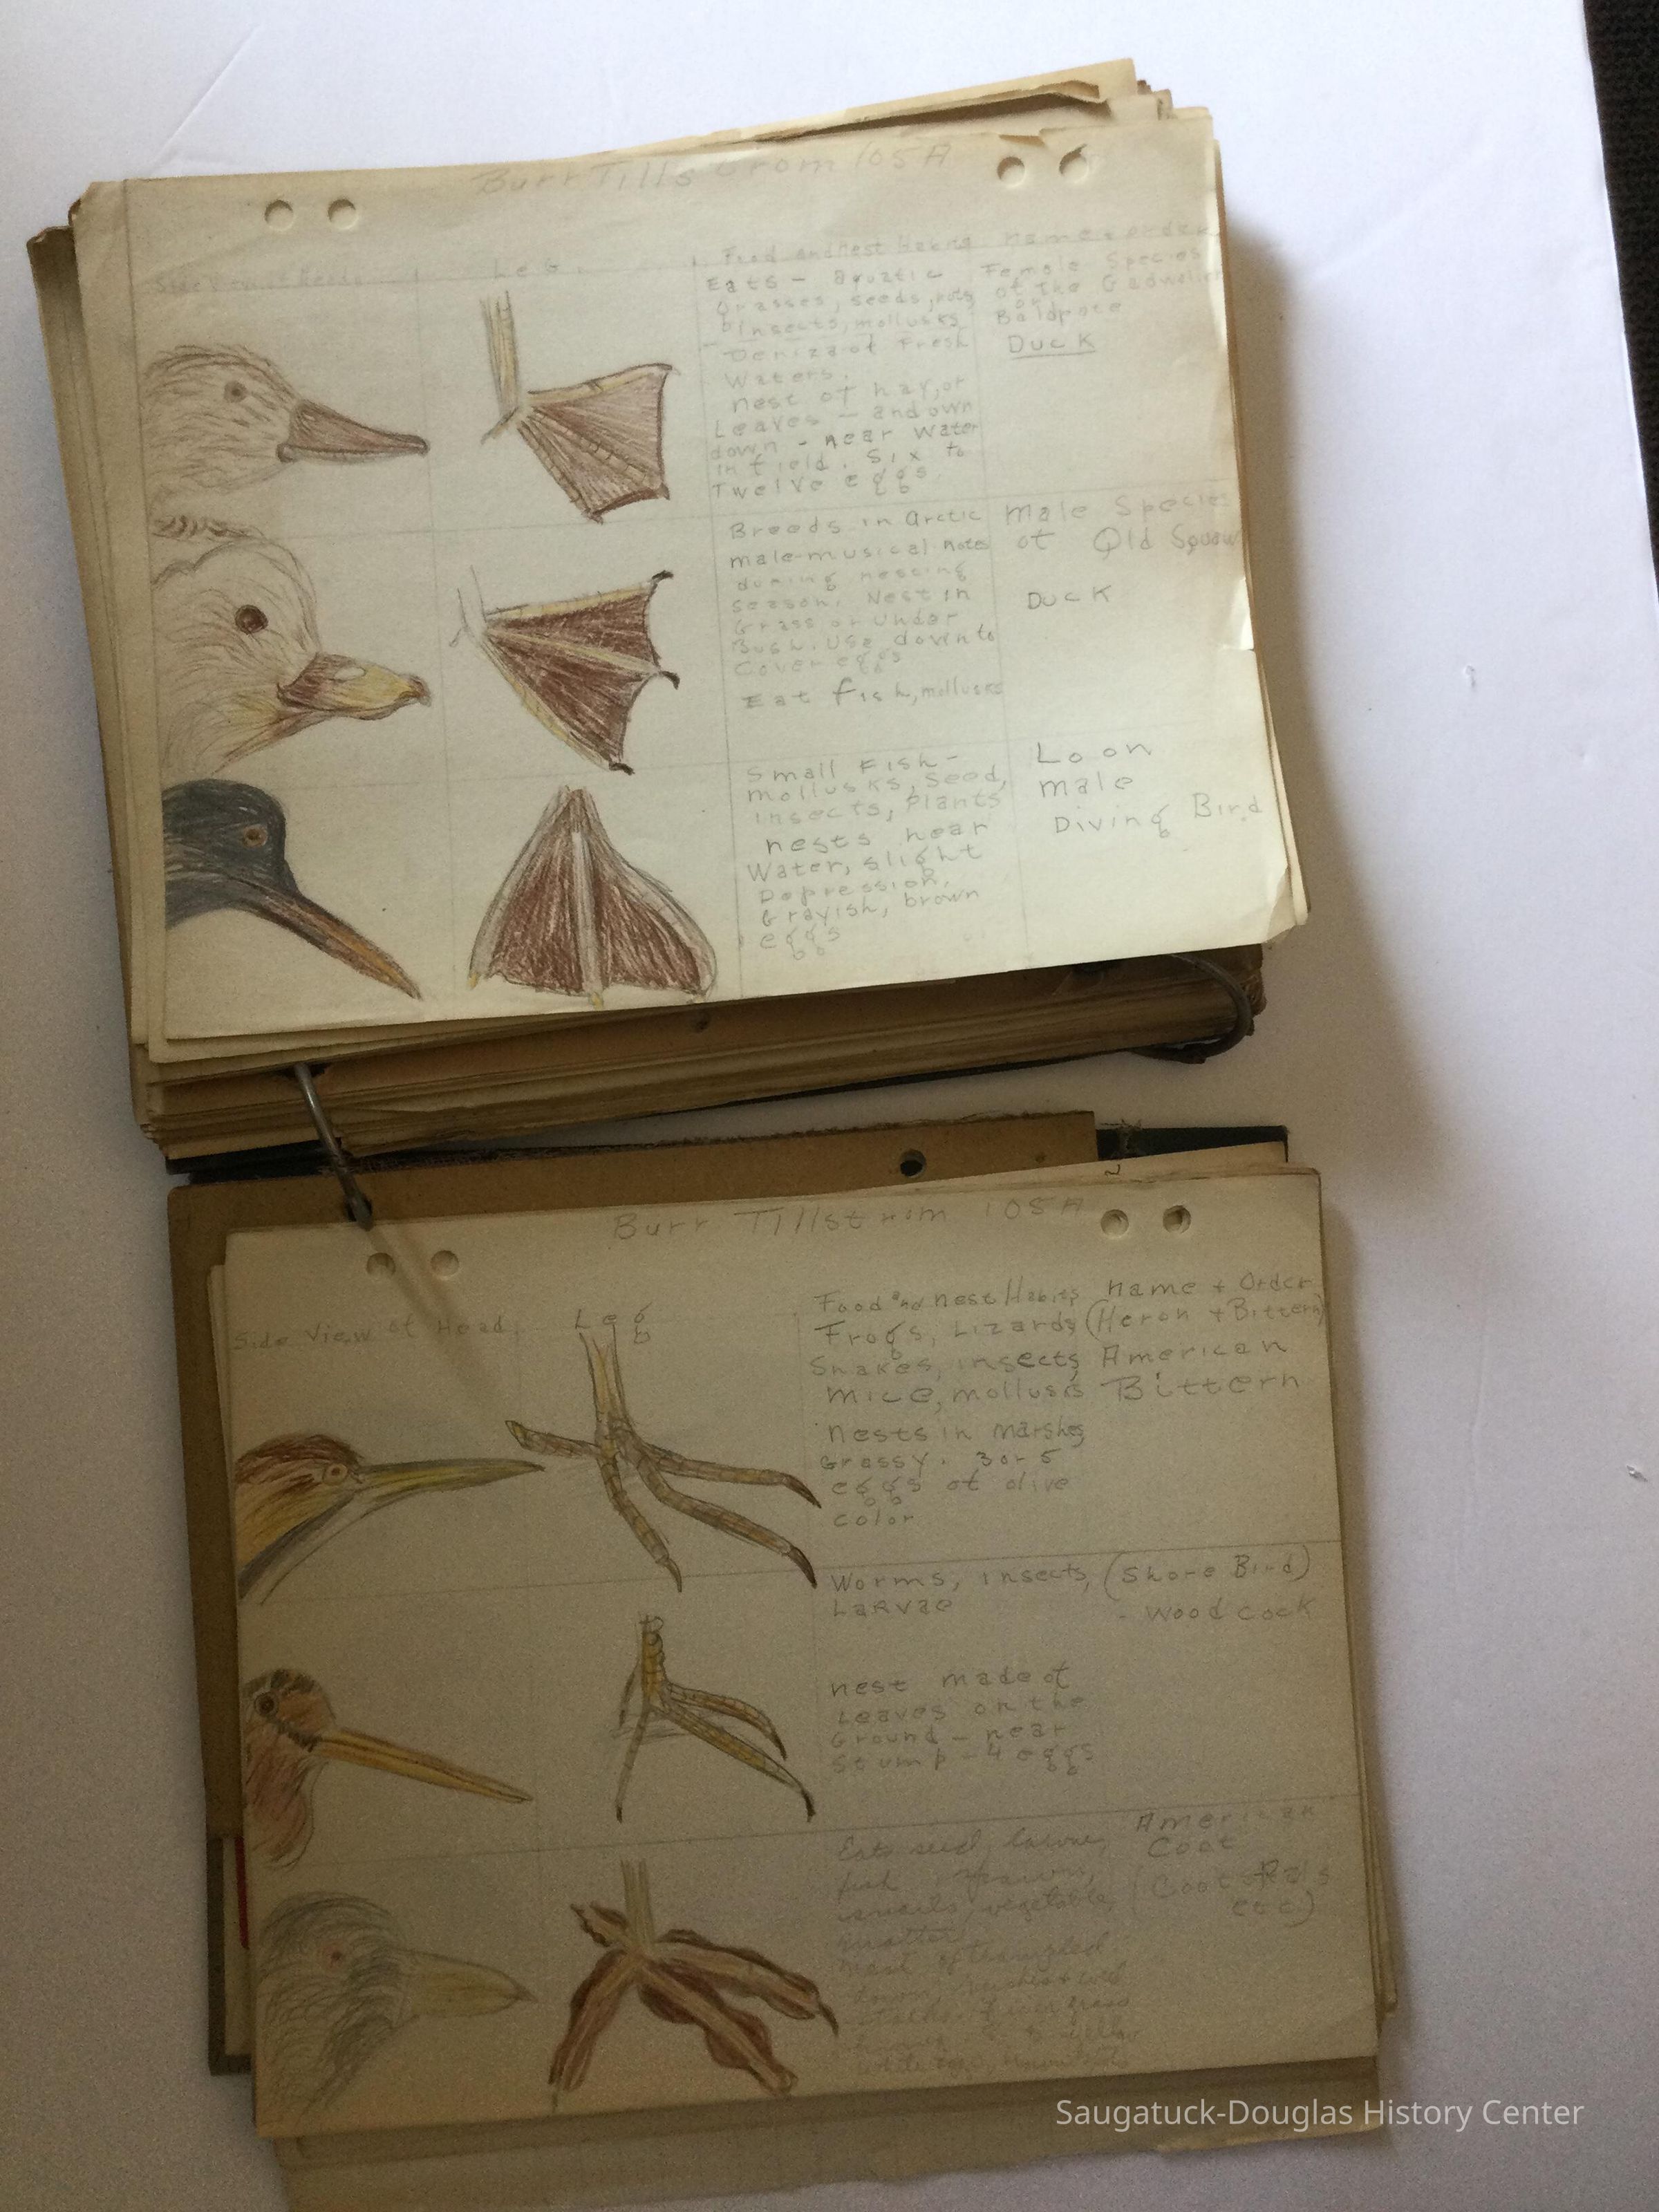 Burr Tillstrom 105A
Side View of Head
Leg
Food and Nest Habits
Name + Order
Eats - Aquatic
Grasses, seeds, nuts
Insects, mollusks
Denizat of Fresh
Waters.
nest of hay, or
Leaves - and own
down - near water
in field. Six to
Twelve eggs
Female Species
of the Gadwall
or
Baldpate
Duck
Breeds in Arctic
male-musical notes
during nesting
season. Nest in
Grass or under
Bush. Use down to
Cover eggs
Eat fish, mollusks
Male Species
of Old Squaw
Duck
Small Fish -
mollusks, Seed,
insects, Plants
nests near
Water, slight
Depression.
Grayish, brown
eggs
Loon
male
Diving Bird
Burr Tillstrom 105A
Side View of Head
Leg
Food and nest Habits
name + Order
Frogs, Lizards
Snakes, insects
mice, mollusks
nests in marshes
Grassy. 3 or 5
eggs of olive
color
(Heron + Bittern)
American
Bittern
Worms, insects,
Larvae
nest made of
Leaves on the
Ground - near
Stump - 4 eggs
(Shore Bird)
- Woodcock
Eats seed, larvae,
fish,
snails, vegetable
matter
nest of tangled
American
Coot
(Coot Rails
etc)
Saugatuck-Douglas History Center